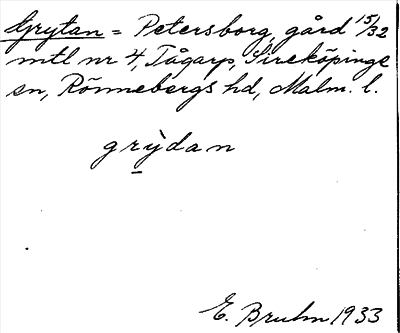 Grytan = Petersborg, gård 15/32
mtl nr 4, Tågarp, Sireköpinge
sn, Rönnebergs hd, Malm. l.
grỳdan
E. Bruhn 1933